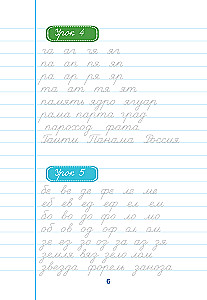 Урок 4
га аг гя яг
па ап пя яп
ра ар ря яр
та ат тя ят
память ядро ягуар
рама парта град
пароход фата
Таити Панама Россия
Урок 5
бе ве де фе ло ме
еб ев ед еф ел ем
бо во до фо ло мо
об ов од оф ол ом
зе ез зо оз за аз зя
земля вяз зело лом
звезда форель заноза
6